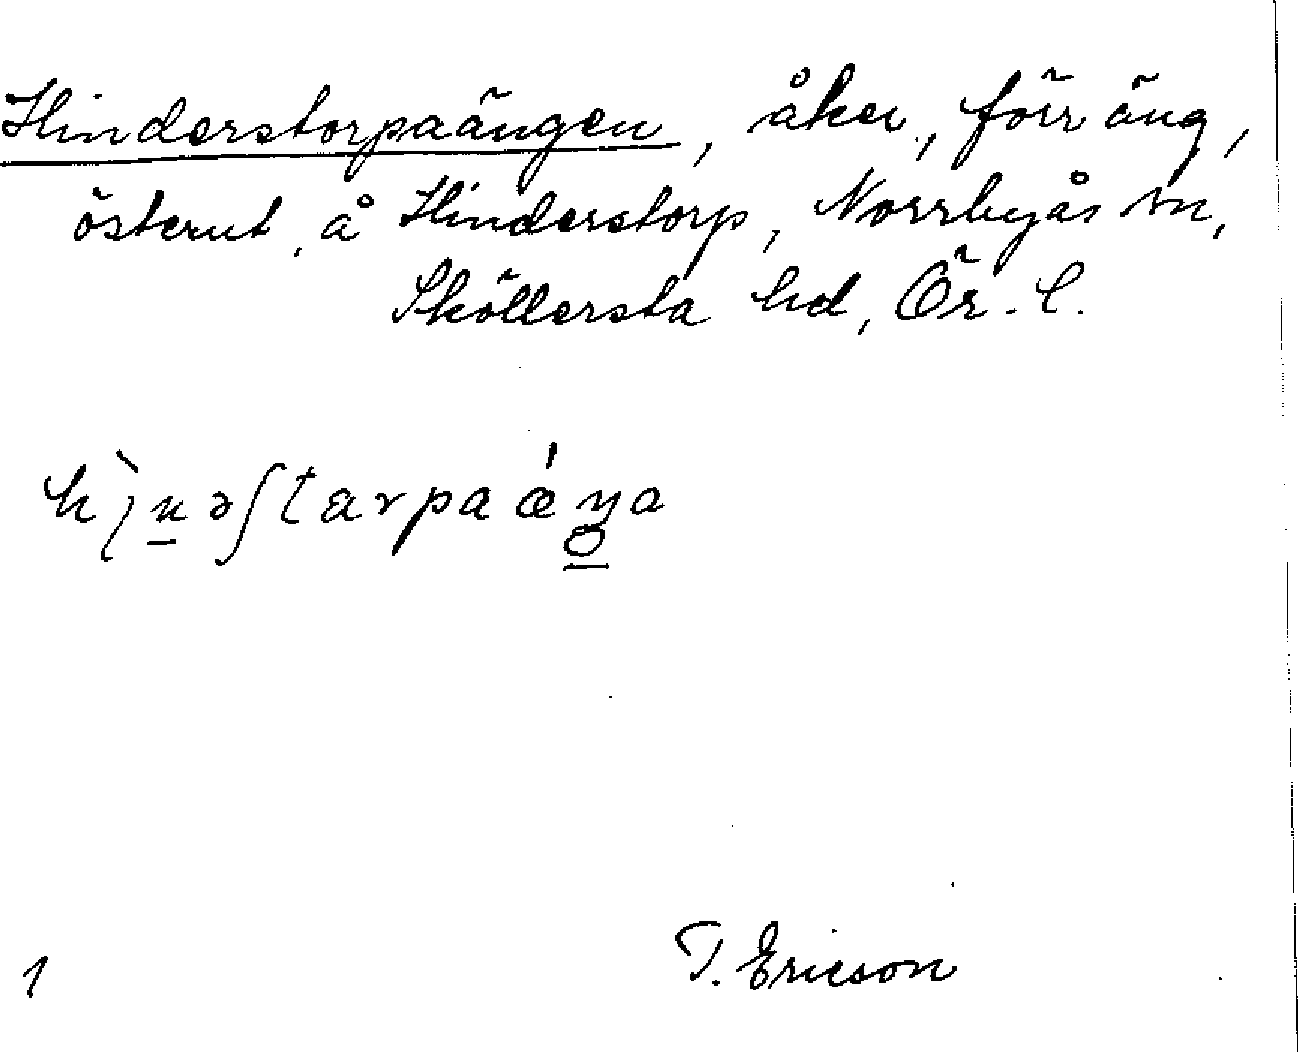 Hinderstorpaängen, åker, förr äng,
österut å Hinderstorp, Norrbyås sn,
Sköllersta hd, Ör. l.
T. Ericson
1